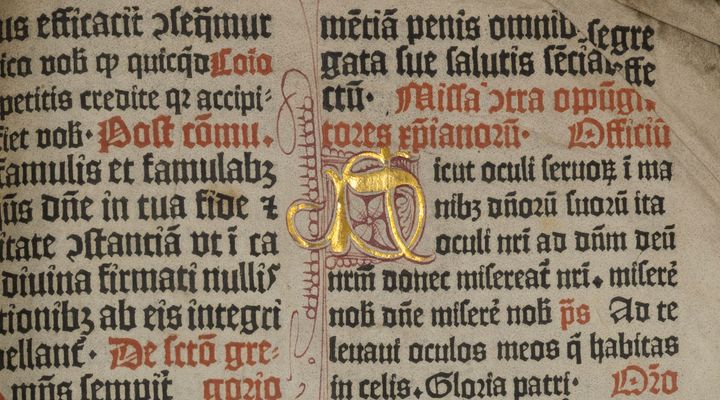 us efficacit᷑ ꝯseq̃mur
ico vob̵ ꝙ quicq̃d Coīo
petitis credite qꝛ accipi⸗
fiet vob̵· Post cōmu.
famulis et famulabꝫ
ꝰs dñe in tua fide ⁊
itate ꝯstanciā vt ī ca
diuina firmati nullis
tionibꝫ ab eis integri
vellant᷑· De sctō gre⸗
mñs sempit᷑ gorio
mētiā penis omnib̵ segre
gata sue salutis sēciat effe
ctū· Missa ꝯtra oppūgn
tores xp̄ianorū· Officiū
Sicut oculi seruoꝝ ī ma
nibꝫ dñorū suorū ita
oculi nr̄i ad dn̄m deū
nrm̄ donec misereat᷑ nr̄i. miserē
nob̵ dñe miserē nob̵ p̄s Ad te
leuaui oculos meos q̄ habitas
in celis. Gloria patri· Or̄o